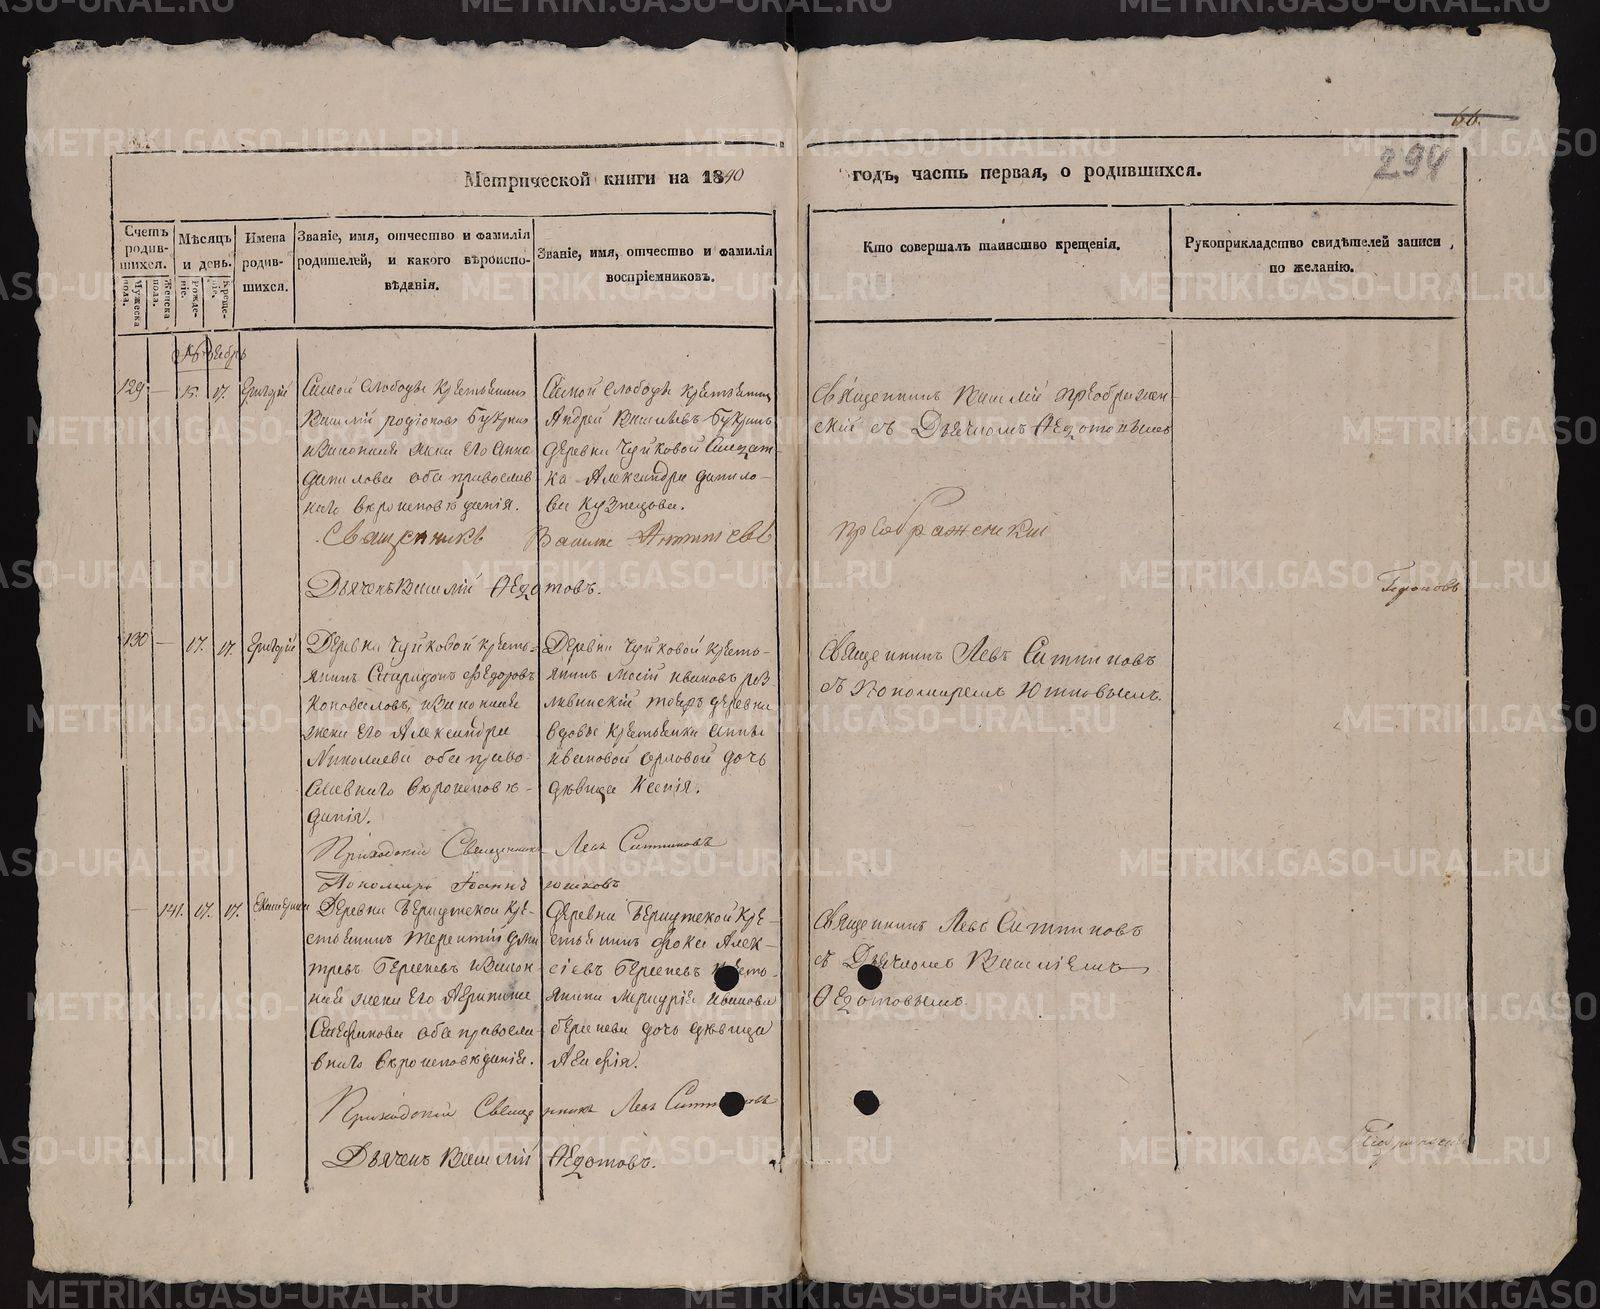 66.
294
Метрической книги на 1840 годъ, часть первая, о родившихся.
Счетъ родив-
шихся.
Мужеска пола.
Женска пола.
Мѣсяцъ
и день.
Рожде-
ніе.
Креще-
ніе.
Имена
родив-
шихся.
Званіе, имя, отчество и фамилія
родителей, и какого вѣроиспо-
вѣданія.
Званіе, имя, отчество и фамилія
воспріемниковъ.
Кто совершалъ таинство крещенія.
Рукоприкладство свидѣтелей записи
по желанію.
129 — 15. 17. Григорій
Самой слободы крестьянинъ
Василій Родіоновъ
и законная жена его Анна
Данилова оба православ
наго вѣроисповѣданія.
Самой слободы крестьянинъ
Андрей Васильевъ
деревни Чуйковой
ка Александра Данило-
ва Кузнецова.
Священникъ Василій Преображен-
скій съ Дьячкомъ Ѳедотовымъ
Священникъ Василій Преображенскій
Дьячекъ Василій Ѳедотовъ.
130 — 17. 17. Григорій
Деревни Чуйковой кресть-
янинъ Спиридонъ Ѳедоровъ
Коноваловъ, и законная
жена его Александра
Николаева оба право-
славнаго вѣроисповѣ-
данія.
Деревни Чуйковой кресть-
янинъ Ивановъ
деревни
вдовы крестьянки Анны
Ивановой Орловой дочь
дѣвица Ксенія.
Священникъ Левъ Ситниковъ
съ Пономаремъ
Приходскій Священникъ Левъ Ситниковъ
Пономарь Іоаннъ
— 141. 17. 17. Екатерина
Деревни кре-
стьянинъ Терентій Дми
тревъ Берсеневъ и закон
ная жена его Агрипина
оба правосла
внаго вѣроисповѣданія.
Деревни кре-
стьянинъ Фока Алек-
сіевъ Берсеневъ кресть-
янина Меркурія Иванова
Берсенева дочь дѣвица
Священникъ Левъ Ситниковъ
съ Дьячкомъ Василіемъ
Ѳедотовымъ.
Приходскій Священникъ Левъ Ситниковъ
Дьячекъ Василій Ѳедотовъ.
METRIKI.GASO-URAL.RU